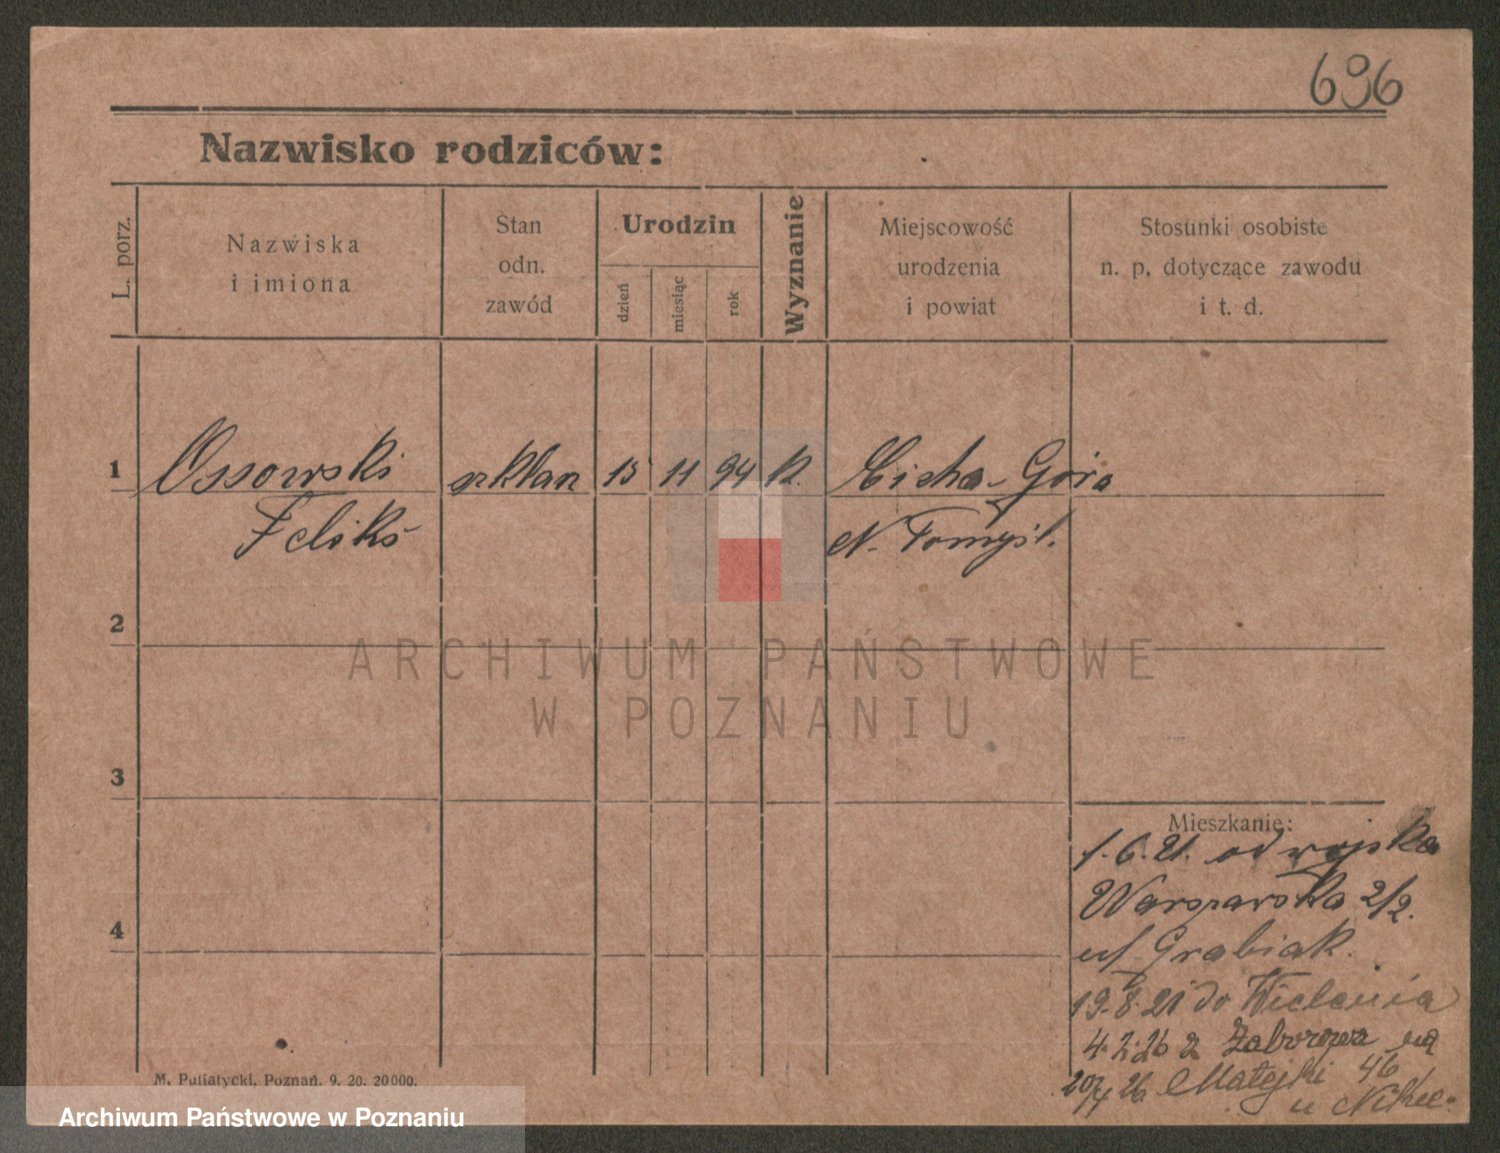 696
Nazwisko rodziców:
L. porz.
Nazwiska
i imiona
Stan
odn.
zawód
Urodzin
dzień
miesiąc
rok
Wyznanie
Miejscowość
urodzenia
i powiat
Stosunki osobiste
n. p. dotyczące zawodu
i t. d.
1 Ossowski szklarz 15 11 94 k. Cicha-Góra
Feliks N. Tomyśl.
2
ARCHIWUM PAŃSTWOWE
W POZNANIU
3
Mieszkanie:
1.6.21. od wojska
Warszawska 2/2.
u/ Grabiak.
4
19.8.21 do Wielenia
4.2.26 z Zaborowa na
Matejki 46
26 u
M. Putiatycki, Poznań. 9. 20. 20000.
Archiwum Państwowe w Poznaniu